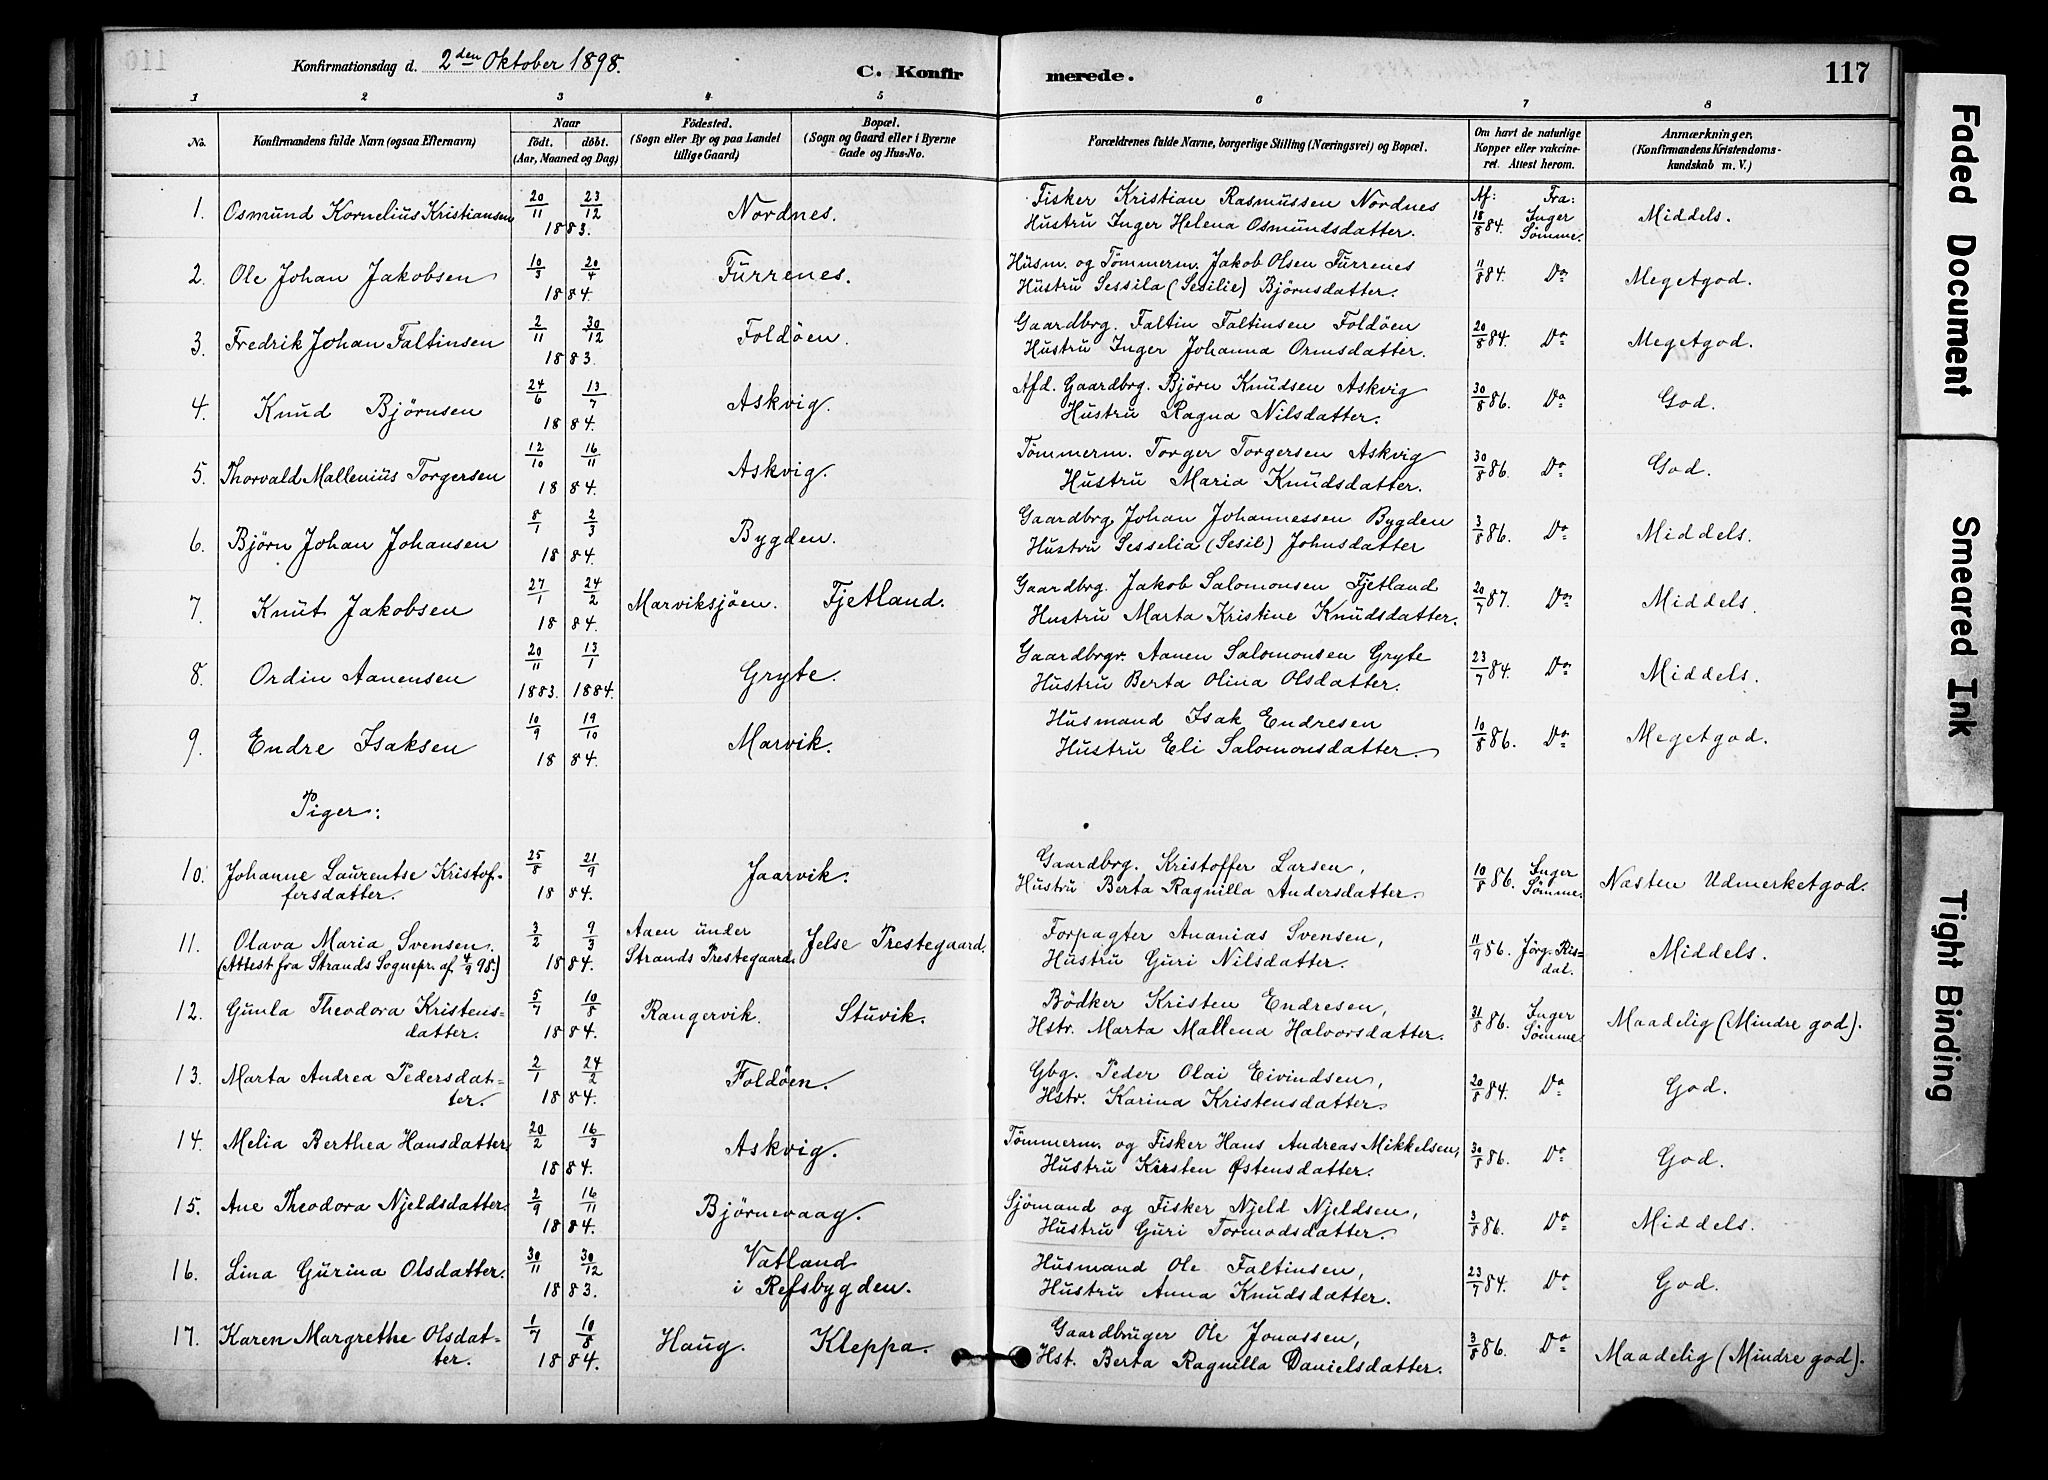 Konfirmationsdag d. 2den Oktober 1898.
C. Konfirmerede.
117
1 2 3 4 5 6 7 8
No.
Konfirmandens fulde Navn (ogsaa Efternavn)
Naar
födt. döbt.
(Aar, Maaned og Dag)
Födested.
(Sogn eller By og paa Landet
tillige Gaard)
Bopæl.
(Sogn og Gaard eller i Byerne
Gade og Hus-No.
Forældrenes fulde Navne, borgerlige Stilling (Næringsvei) og Bopæl.
Om havt de naturlige
Kopper eller vakcine-
ret. Attest herom.
Anmærkninger.
(Konfirmandens Kristendoms-
kundskab m. V.)
1. Osmund Kornelius Kristiansen 20/11 23/12 1883. Nordnes. Fisker Kristian Rasmussen Nordnes
Hustru Inger Helena Osmundsdatter. Af: 18/8 84. Fra: Inger Sømme. Middels.
2. Ole Johan Jakobsen 10/3 20/4 1884. Furrenes. Husm. og Tömmerm. Jakob Olsen Furrenes
Hustru Sessila (Sesilie) Björnsdatter. 11/8 84. Do Megetgod.
3. Fredrik Johan Faltinsen 2/11 30/12 1883. Foldöen. Gaardbrg. Faltin Faltinsen Foldöen
Hustru Inger Johanna Ormsdatter. 20/8 84. Do Megetgod.
4. Knud Björnsen 24/6 13/7 1884. Askvig. Afd. Gaardbrg. Björn Knudsen Askvig
Hustru Ragna Nilsdatter. 30/8 86. Do God.
5. Thorvald Mallenius Torgersen 12/10 16/11 1884. Askvig. Tömmerm. Torger Torgersen Askvig
Hustru Maria Knudsdatter. 30/8 86. Do God.
6. Björn Johan Johansen 8/1 2/3 1884. Bygden. Gaardbrg. Johan Johannessen Bygden
Hustru Sesselia (Sesil) Johnsdatter 3/8 86. Do Middels.
7. Knut Jakobsen 27/1 24/2 1884. Marviksjöen. Fjetland. Gaardbrg. Jakob Salomonsen Fjetland
Hustru Marta Kristine Knudsdatter. 20/7 87. Do Middels.
8. Ordin Aanensen 20/11 1883. 13/1 1884. Gryte. Gaardbrgr. Aanen Salomonsen Gryte
Hustru Berta Olina Olsdatter. 23/7 84. Do Middels.
9. Endre Isaksen 10/9 19/10 1884. Marvik. Husmand Isak Endresen
Hustru Eli Salomonsdatter. 10/8 86. Do Megetgod.
Piger:
10. Johanne Laurentse Kristof-
fersdatter. 25/8 21/9 1884. Jaarvik. Gaardbrg. Kristoffer Larsen,
Hustru Berta Ragnilla Andersdatter. 10/8 86. Inger Sømme. Næsten Udmerketgod.
11. Olava Maria Svensen.
(Attest fra Strands Sognepr. af 4/9 98.) 3/2 9/3 1884. Aaen under
Strands Prestegaard. Jelse Prestegaard. Forpagter Ananias Svensen,
Hustru Guri Nilsdatter. 11/9 86. Jörg. Ris=
dal. Middels.
12. Gunla Theodora Kristens=
datter. 5/7 10/8 1884. Rangervik. Stuvik. Bödker Kristen Endresen,
Hstr. Marta Mallena Halvorsdatter. 31/8 86. Inger Sømme. Maadelig (Mindre god).
13. Marta Andrea Pedersdat=
ter. 2/1 24/2 1884. Foldöen. Gbg. Peder Olai Eivindsen,
Hstr. Karina Kristensdatter. 20/8 84. Do God.
14. Melia Berthea Hansdatter 20/2 16/3 1884. Askvig. Tömmerm. og Fisker Hans Andreas Mikkelsen,
Hustru Kirsten Østensdatter. 30/8 86. Do God.
15. Ane Theodora Njeldsdatter. 2/9 16/11 1884. Björnevaag. Sjömand og Fisker Njeld Njeldsen,
Hustru Guri Tormodsdatter. 3/8 86. Do Middels.
16. Lina Gurina Olsdatter. 30/11 30/12 1883. Vatland
i Refsbygden. Husmand Ole Faltinsen,
Hustru Anna Knudsdatter. 23/7 84. Do God.
17. Karen Margrethe Olsdat=
ter. 1/7 10/8 1884. Haug. Kleppa. Gaardbruger Ole Jonassen,
Hst. Berta Ragnilla Danielsdatter. 3/8 86. Do Maadelig (Mindre god).
Faded Document
Smeared Ink
Tight Binding